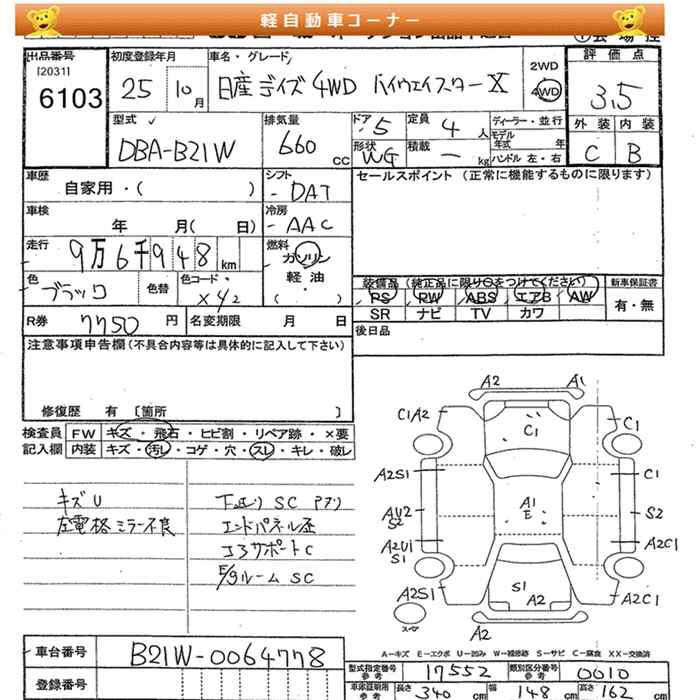 軽自動車コーナー
出品番号
[2031]
6103
初度登録年月
25 10月
車名・グレード
日産 デイズ 4WD ハイウェイスターX
2WD
4WD
評価点
3.5
型式
DBA-B21W
排気量
660 cc
ドア 5
定員 4人
形状 WG
積載 — kg
ディーラー・並行
モデル年式 年
ハンドル 左・右
外装 内装
C B
車歴
自家用・( )
シフト
-DAT
セールスポイント(正常に機能するものに限ります)
車検
年 月( 日)
冷房
-AAC
走行
9万6千948km
燃料
ガソリン
軽油
(・)
色
ブラック
色替
色コード・
X42
装備品(純正品に限り○をつけてください)
PS PW ABS エアB AW
SR ナビ TV カワ
新車保証書
有・無
R券 7750円
名変期限 月 日
後日品
注意事項申告欄(不具合内容等は具体的に記入して下さい)
修復歴 有〔箇所 〕
検査員 FW キズ・飛石・ヒビ割・リペア跡・×要
記入欄 内装 キズ・汚レ・コゲ・穴・スレ・キレ・破レ
キズU
左電格ミラー不良
下廻りSC
エンドパネル歪
コアサポートC
E/gルームSC
A2 A1
C1A2 C1 C1
A2S1 C1
AU2
S2 A1
E S2
A2U1
S1 A2C1
A2S1 S1
A2 A2C1
スペア
A2
A-キズ E-エクボ U-凹み W-補修跡 S-サビ C-腐食 XX-交換済
車台番号 B21W-0064778
登録番号
型式指定番号
参考
17552
類別区分番号
参考
0010
車体証明用
参考
長さ 340cm 幅 148cm 高さ 162cm